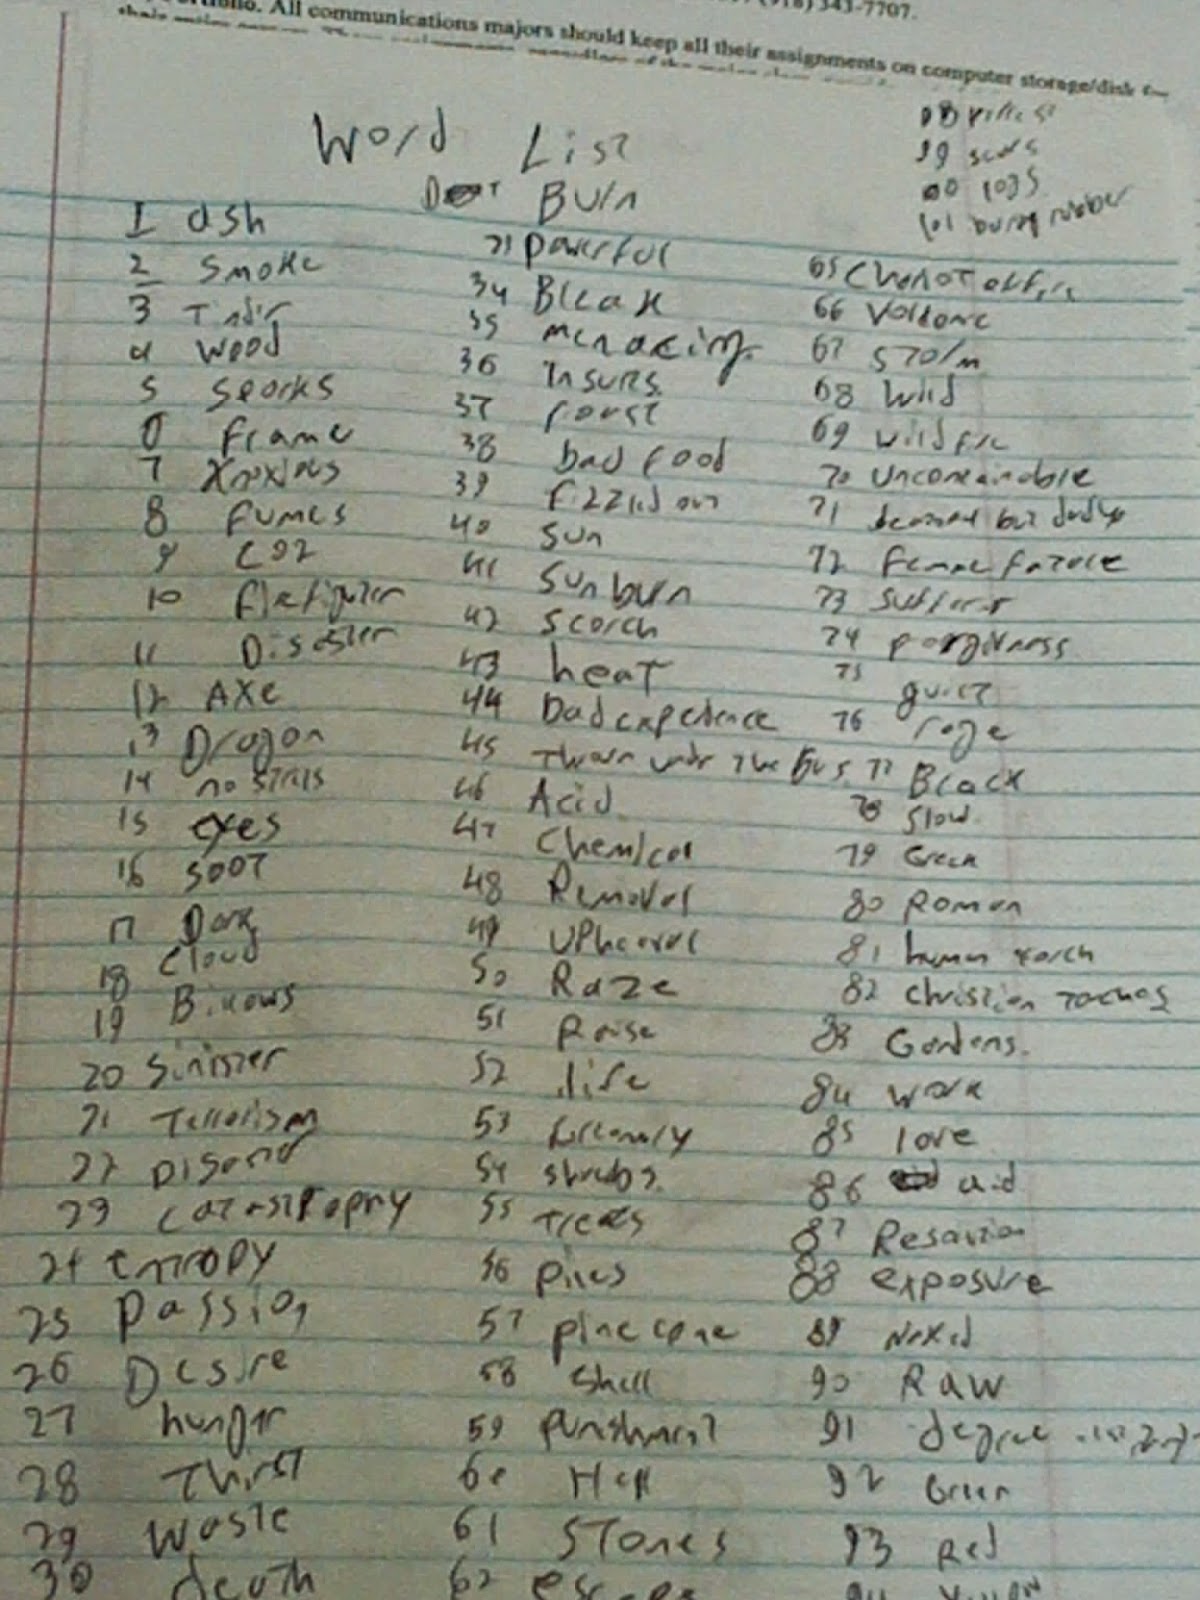 (918) 343-7707.
All communications majors should keep all their assignments on computer storage/disk
Word List
Burn
1 ash
2 smoke
3 Tindir
4 wood
5 sparks
6 frame
7 Knoxious
8 fumes
9 CO2
10
11 Disaster
12 AXe
13 Dragon
14 nostrils
15 eyes
16 SOOT
17 Dark
18 Cloud
19 Billows
20 Sinister
21 Terrorism
22
23 catastrophry
24 entropy
25 Passion
26 Desire
27 hunger
28 Thirst
29 waste
30 death
powerful
34 Bleak
35 menacing
36
37
38 bad food
39 fizzled out
40 sun
41 sunburn
42 scorch
43 heat
44 bad experience
45 Thrown under The bus
46 Acid
47 Chemical
48 Removal
49 Upheaval
50 Raze
51 Raise
52 life
53
54 shrubs
55 Trees
56 pines
57 pine cone
58 shell
59 punishment
60 Hell
61 STones
62 escape
98
99 scars
00 logs
101 burning rubber
65 Chariot of fire
66
67 STorm
68 Wild
69 wildfire
70 Unconainable
71 but deadly
72
73 suffer
74 forgivness
75 guilt
76 rage
77 Black
78 slow
79 Green
80 Roman
81 human torch
82 christian
83 Gardens.
84 work
85 love
86 aid
87
88 exposure
89 Naked
90 Raw
91 degree
92 Green
93 Red
94 Yellow